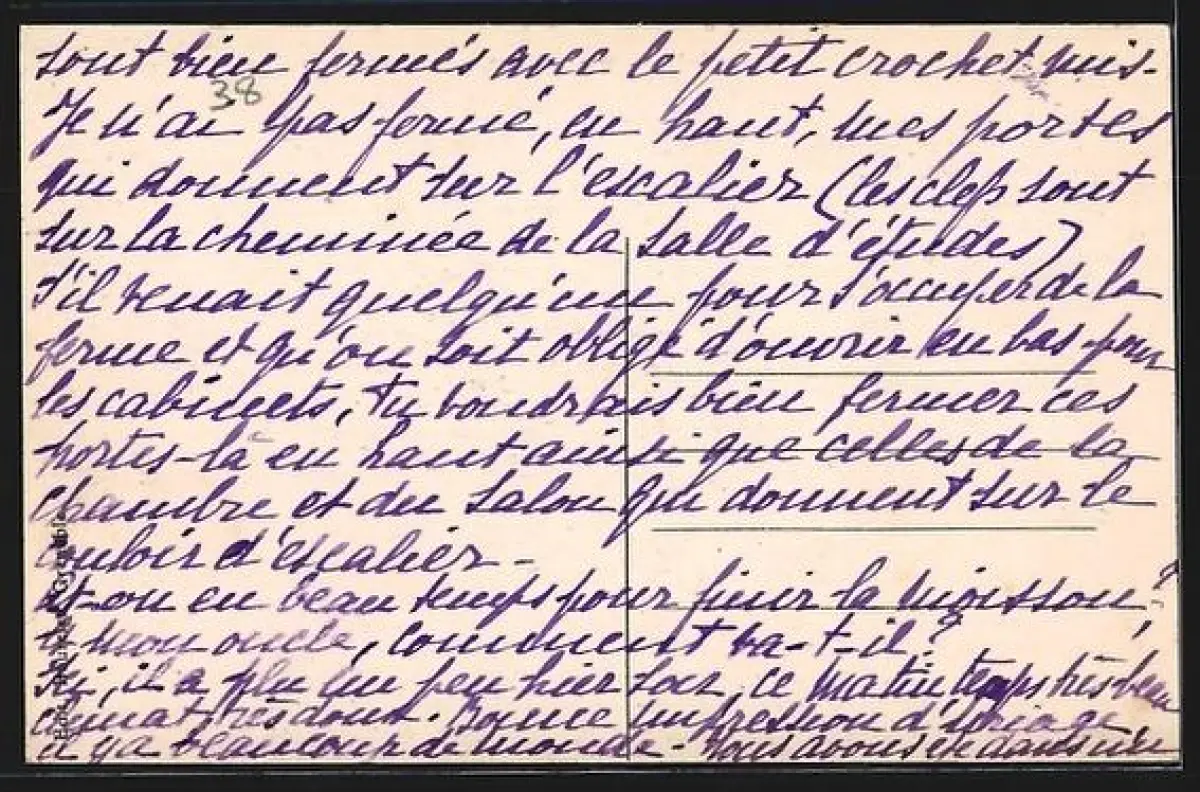 sont bien fermés avec le petit crochet mis-
38
Je n'ai pas fermé, en haut, mes portes
qui donnent sur l'escalier (les clefs sont
sur la cheminée de la salle d'études)
S'il venait quelqu'un pour s'occuper de la
ferme et qu'on soit obligé d'ouvrir en bas pour
les cabinets, tu voudrais bien fermer ces
portes-là en haut ainsi que celles de la
chambre et du salon qui donnent sur le
couloir d'escalier -
at-on eu beau temps pour finir la moisson ?
mon oncle, comment va-t-il ?
Ici, il a plu un peu hier soir, ce matin temps très beau
climat très doux. Bonne impression d'Uriage
il y a beaucoup de monde - Nous avons